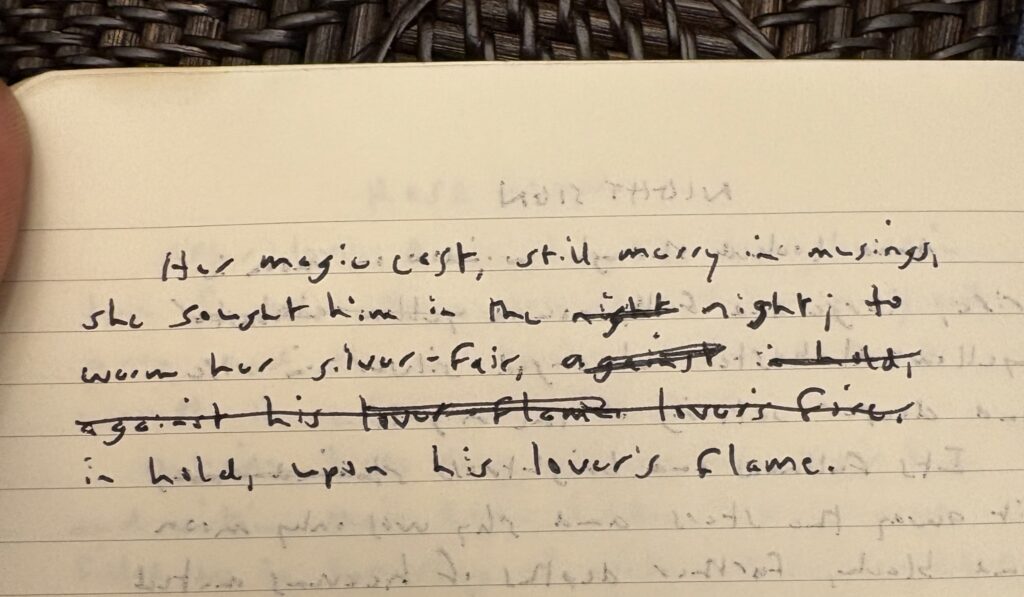 Her magic cast, still merry in musings,
she sought him in the night night; to
warm her silver-fair, against in hold,
against his lover flame. lover's fire,
in hold, upon his lover's flame.